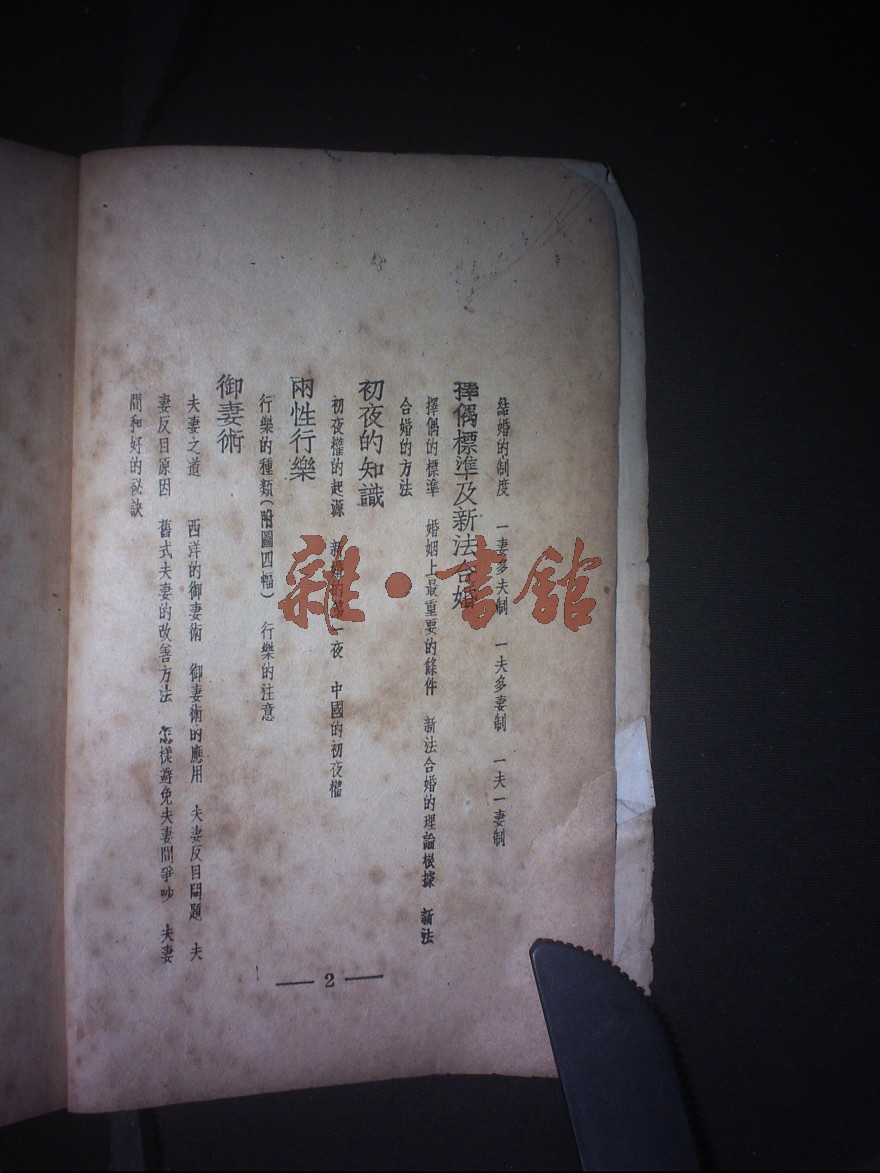 結婚的制度　一妻多夫制　一夫多妻制　一夫一妻制
擇偶標準及新法合婚
擇偶的標準　婚姻上最重要的條件　新法合婚的理論根據　新法
合婚的方法
初夜的知識
初夜權的起源　新婚的第一夜　中國的初夜權
兩性行樂
行樂的種類(附圖四幅)　行樂的注意
御妻術
夫妻之道　西洋的御妻術　御妻術的應用　夫妻反目問題　夫
妻反目原因　舊式夫妻的改善方法　怎樣避免夫妻間爭吵　夫妻
間和好的秘訣
— 2 —
雜·書館